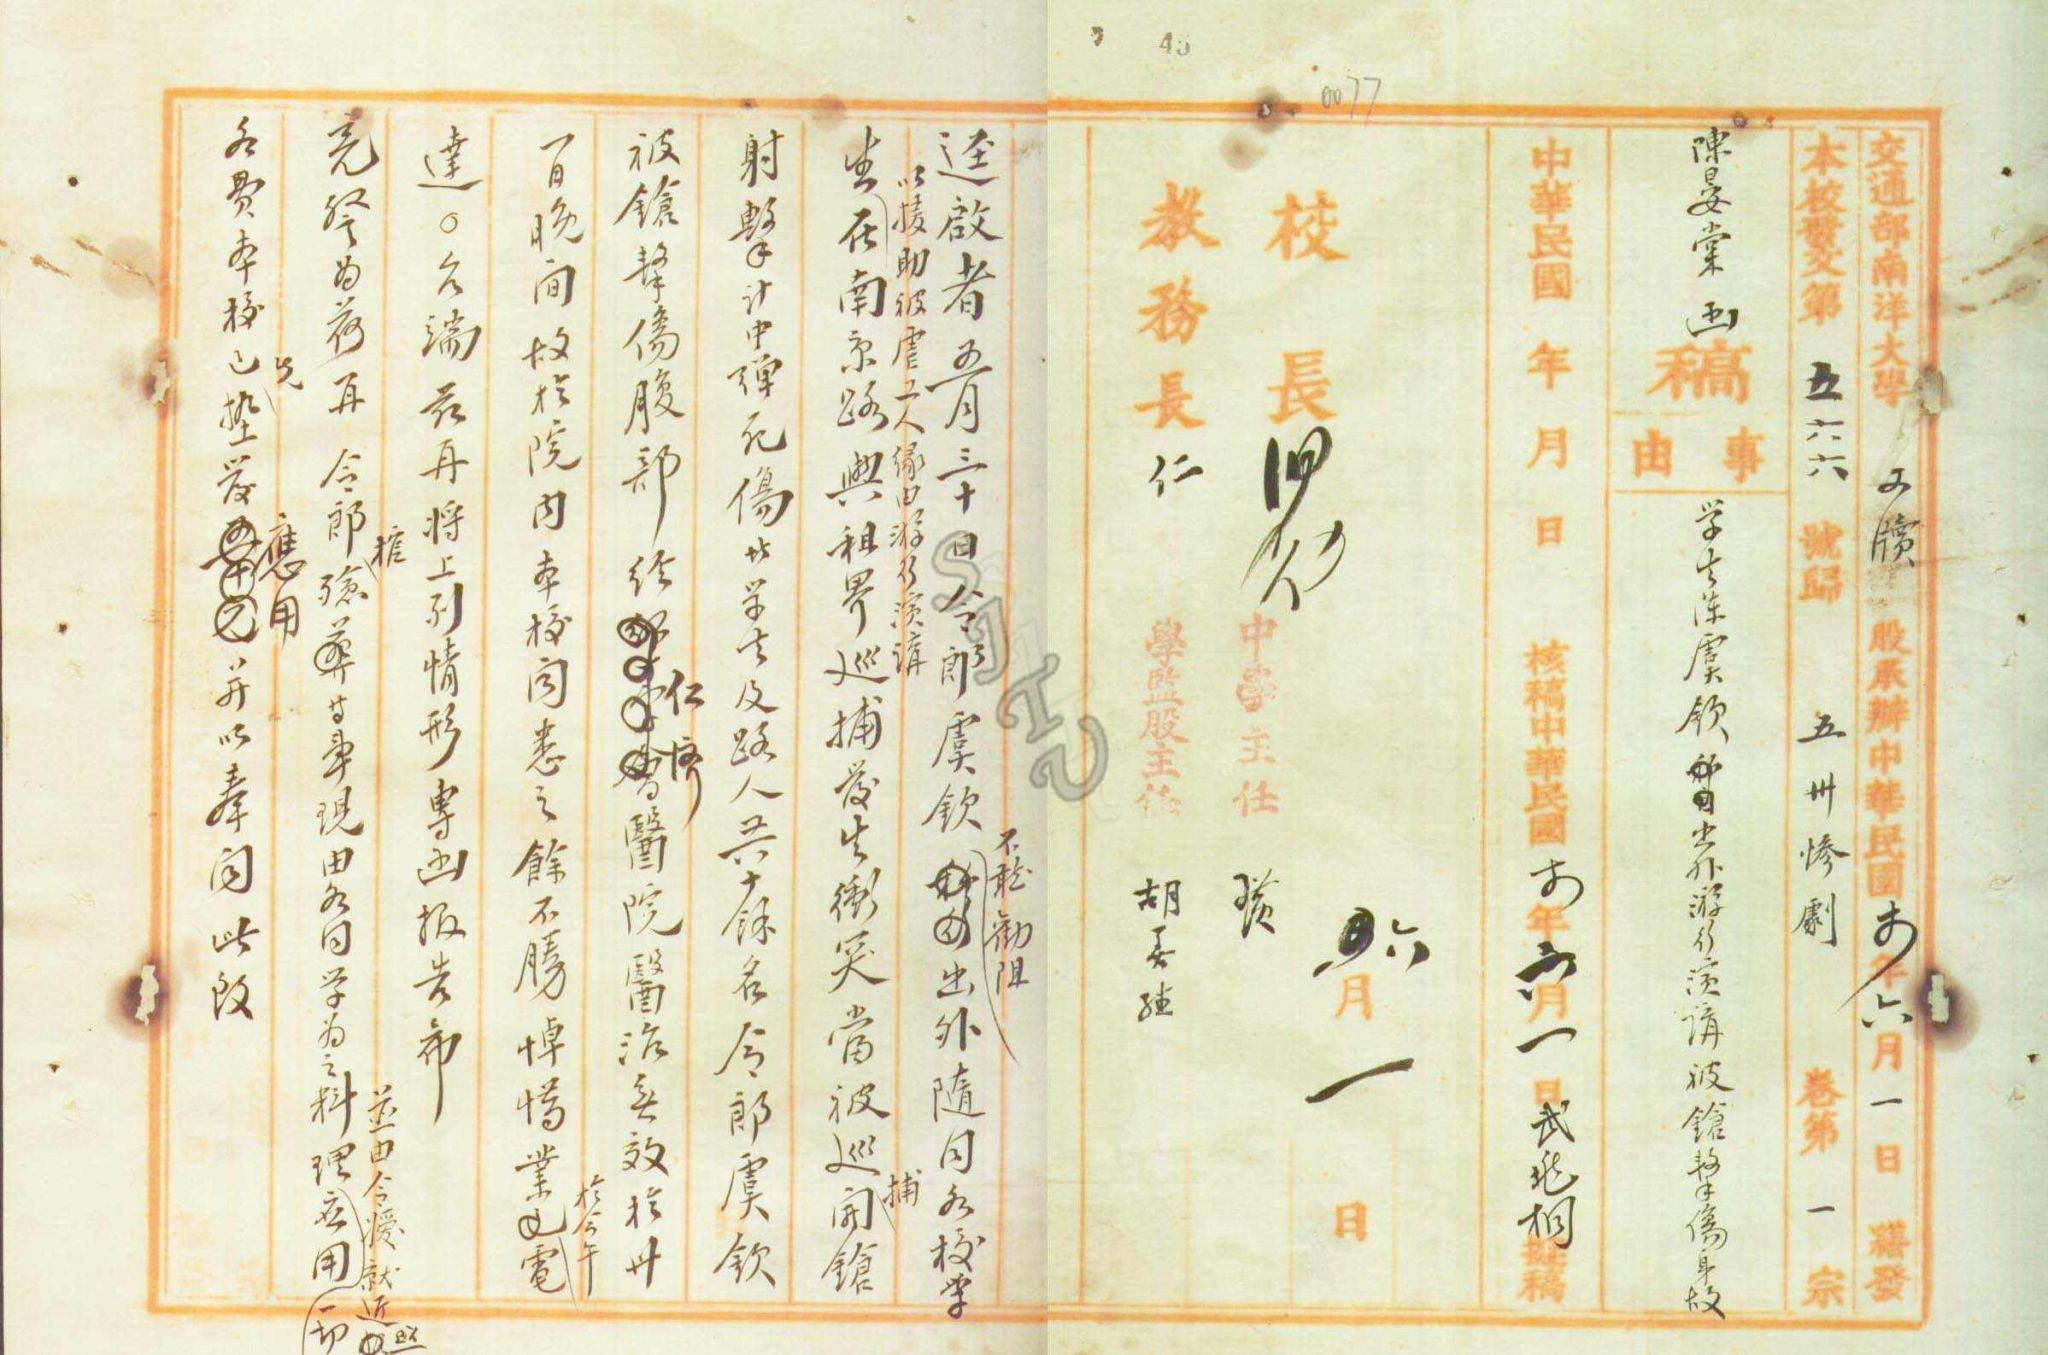 45
0077
交通部南洋大學文牘股承辦中華民國十四年六月一日繕發
本校發文第五六六號歸五卅慘劇卷第一宗
陳晏棠函稿
事由
学生陈虞钦出外游行演講被鎗擊傷身故
中華民國 年 月 日 核稿中華民國十四年六月一日武兆桐擬稿
校長
六月一日
中學主任
教務長仁
學監股主任
迳啟者五月三十日令郎虞欽不聽勸阻出外隨同各校学
以援助被虐工人緣由游行演講
生在南京路與租界巡捕發生衝突當被巡捕開鎗
射擊計中彈死傷者学生及路人共十餘名令郎虞欽
被鎗擊傷腹部经仁濟醫院醫治无效於卅
一日晚间故於院内本校闻悉之餘不勝悼惜業於今午電
達〇〇尊端兹再将上列情形專函报告希
亮詧为荷再令郎殮葬等事現由各同学为之料理
並由令嫒就近照
棺
應用一切
各費本校已先垫發應用并以奉闻此致